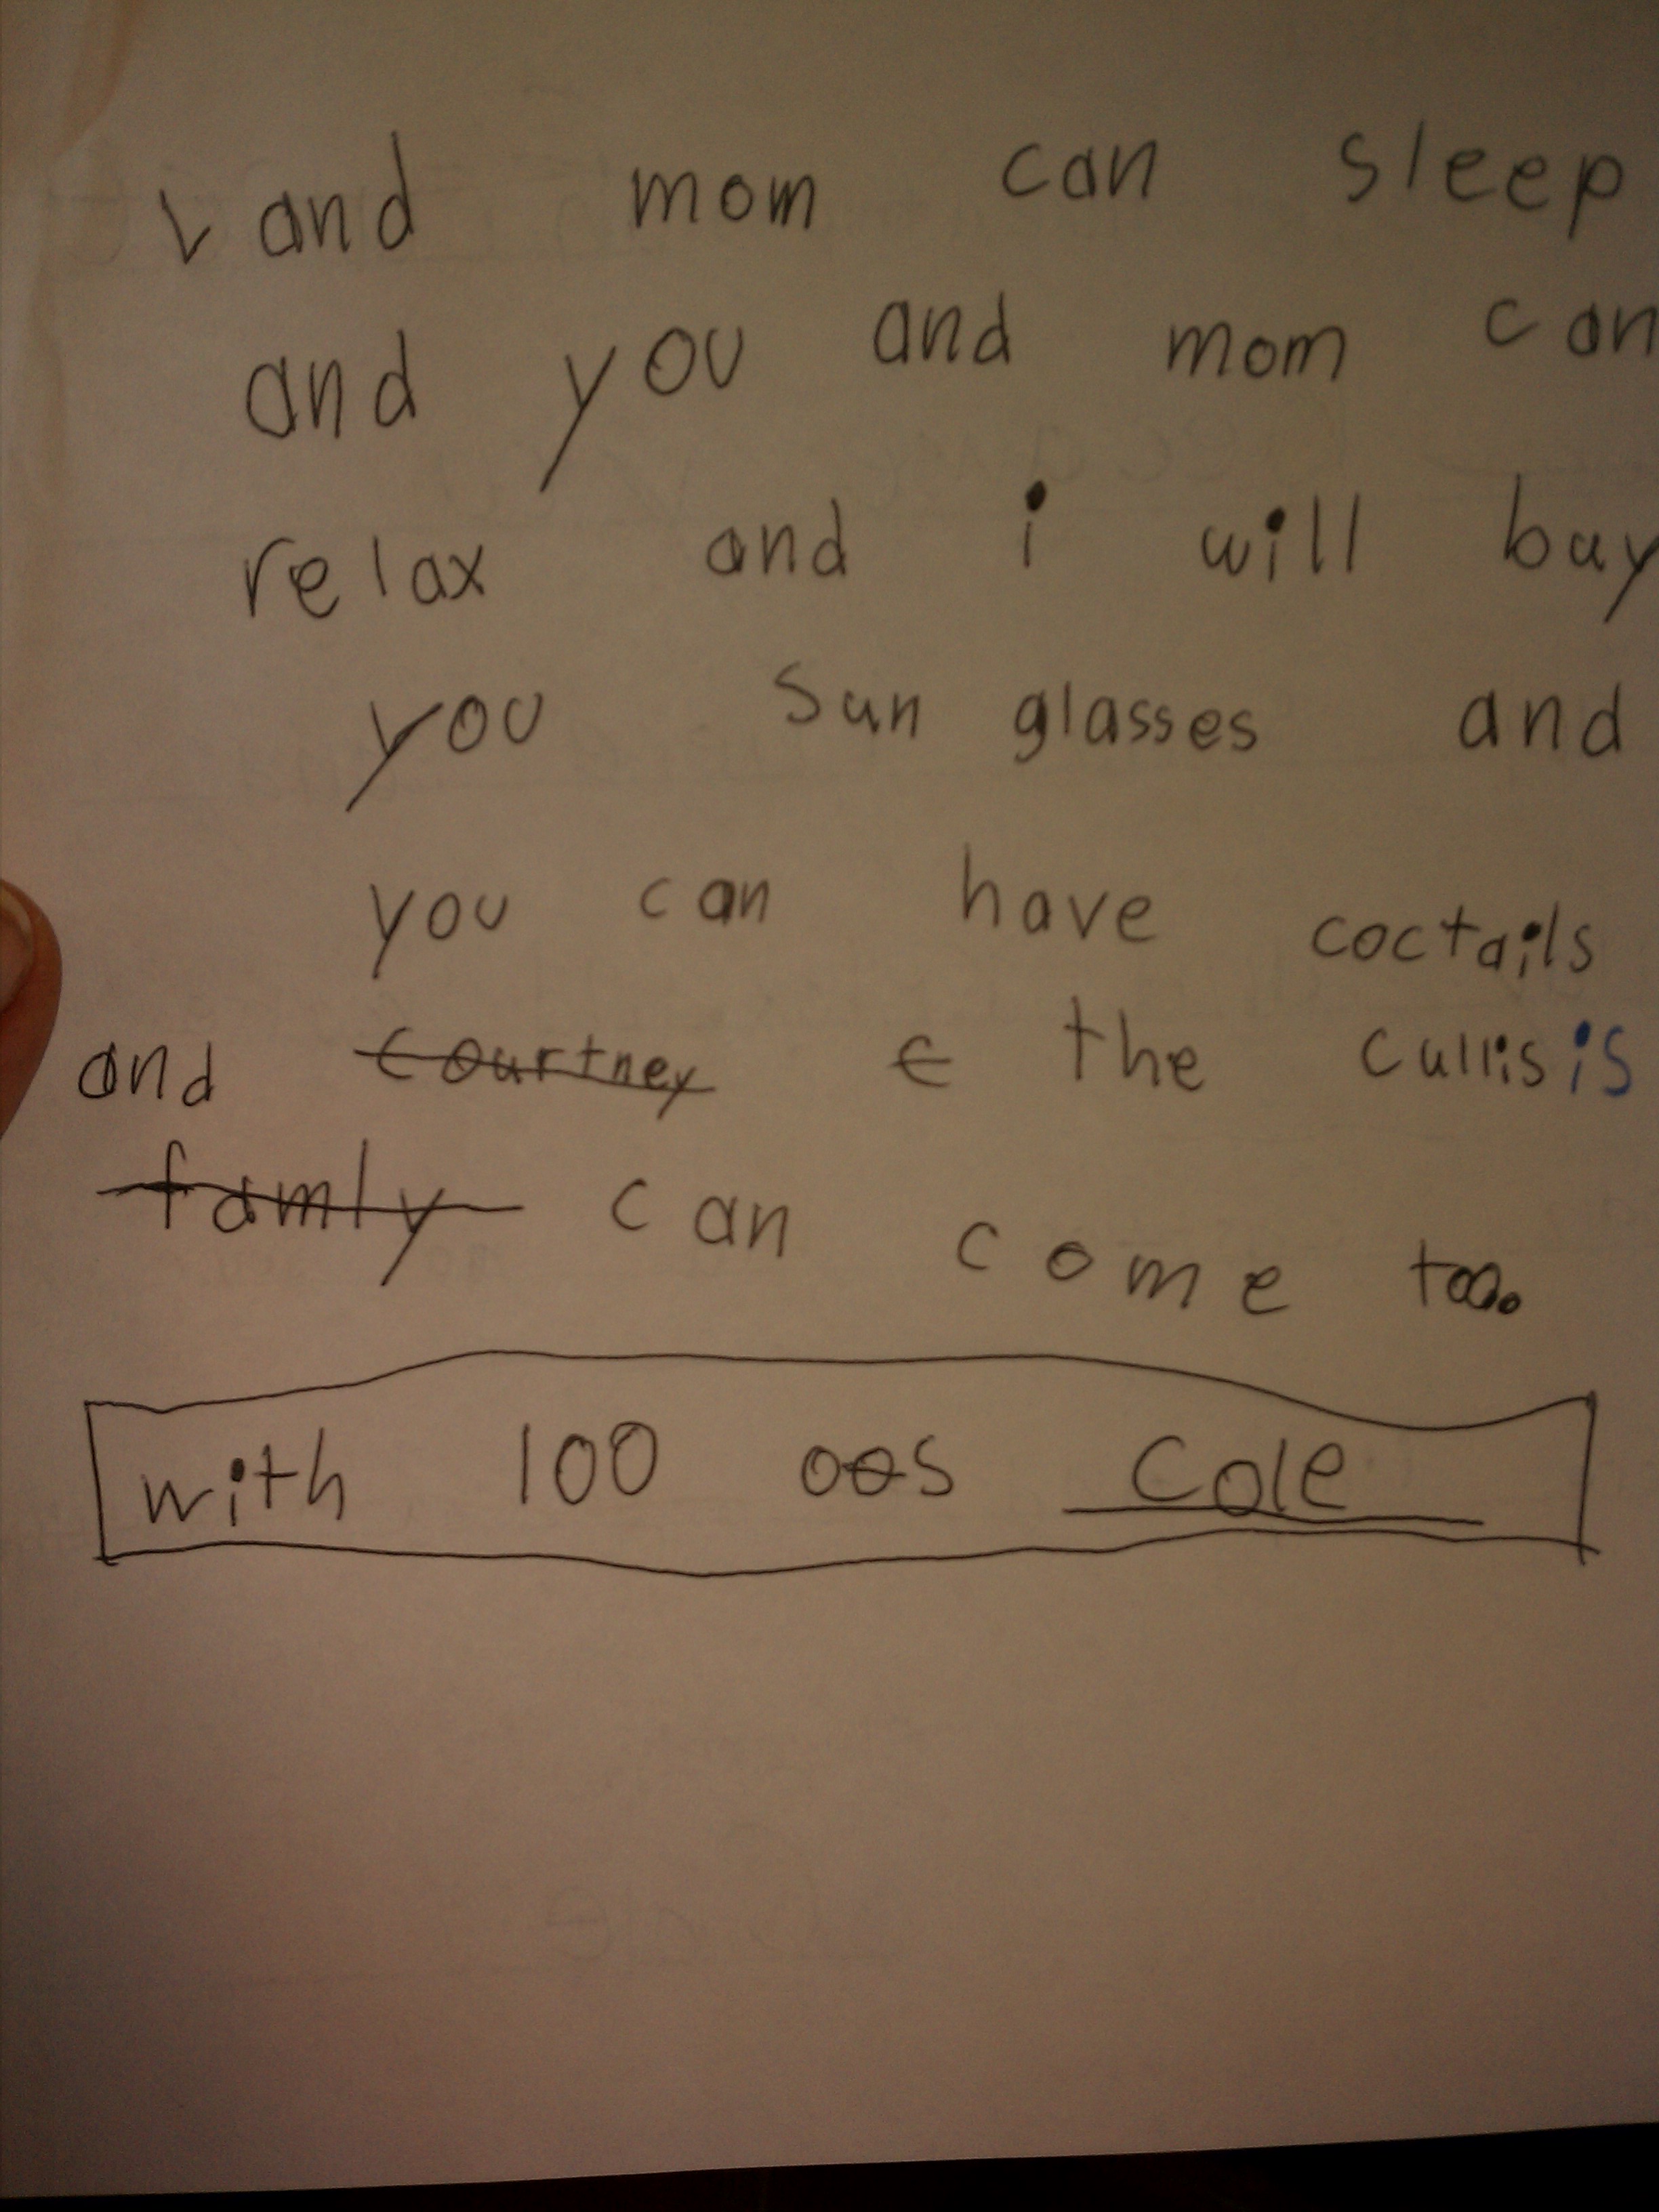 and mom can sleep
and you and mom can
relax and i will buy
you sun glasses and
you can have coctails
and courtney c the cullisis
famly can come too.
with 100 oos cole